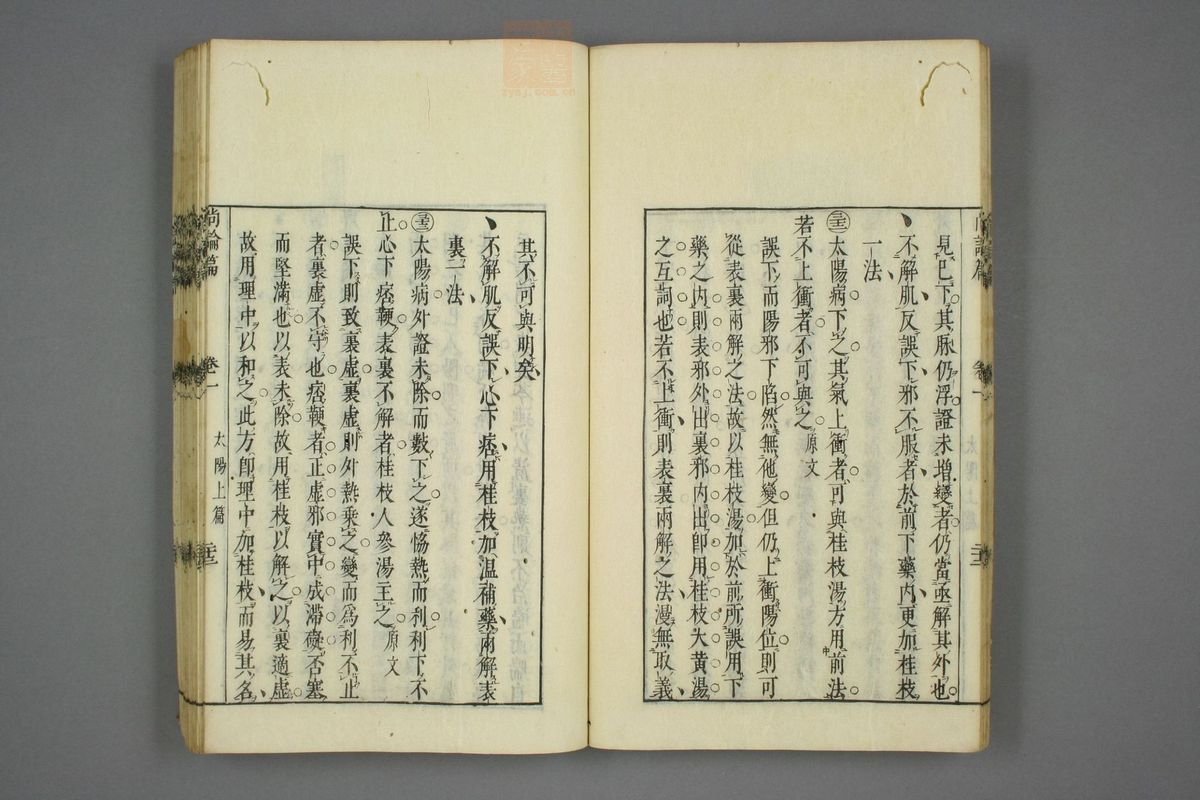 見已下其脉仍浮證未增變者仍當亟解其外也
不解肌反誤下邪不服者於前下藥內更加桂枝
一法
太陽病下之其氣上衝者可與桂枝湯方用前法
若不上衝者不可與之原文
誤下而陽邪下陷然無他變但仍上衝陽位則可
從表裏兩解之法故以桂枝湯加於前所誤用下
藥之內則表邪外出裏邪內出即用桂枝大黃湯
之互詞也若不上衝則表裏兩解之法漫無取義
其不可與明矣
不解肌反誤下心下痞用桂枝加温補藥兩解表
裏一法
太陽病外證未除而數下之遂恊熱而利利下不
止心下痞鞕表裏不解者桂枝人參湯主之原文
誤下則致裏虛裏虛則外熱乘之變而爲利不止
者裏虛不守也痞鞕者正虛邪實中成滯礙否塞
而堅滿也以表未除故用桂枝以解之以裏適虛
故用理中以和之此方即理中加桂枝而易其名
尚論篇
卷一
太陽上篇
醫
家
zysj.com.cn